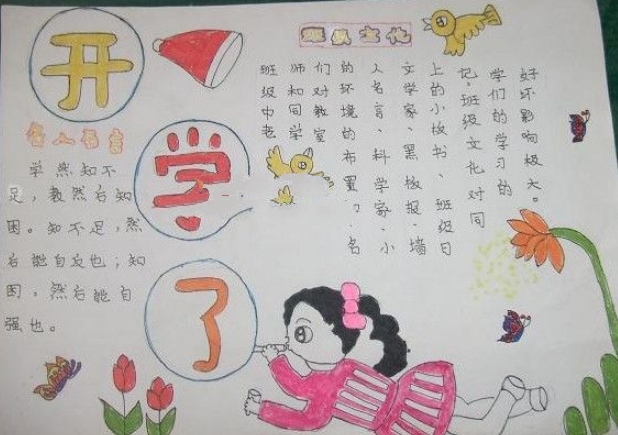 开
学
了
班级文化
名人名言
学然知不
足，教然后知
困。知不足，然
后能自反也；知
困，然后能自
强也。
班级中老
师和同学
们对教室
的环境的布置、名
人名言、科学家、小
文学家、黑板报、墙
上的小板书、班级日
记，班级文化对同
学们的学习的
好坏影响极大。